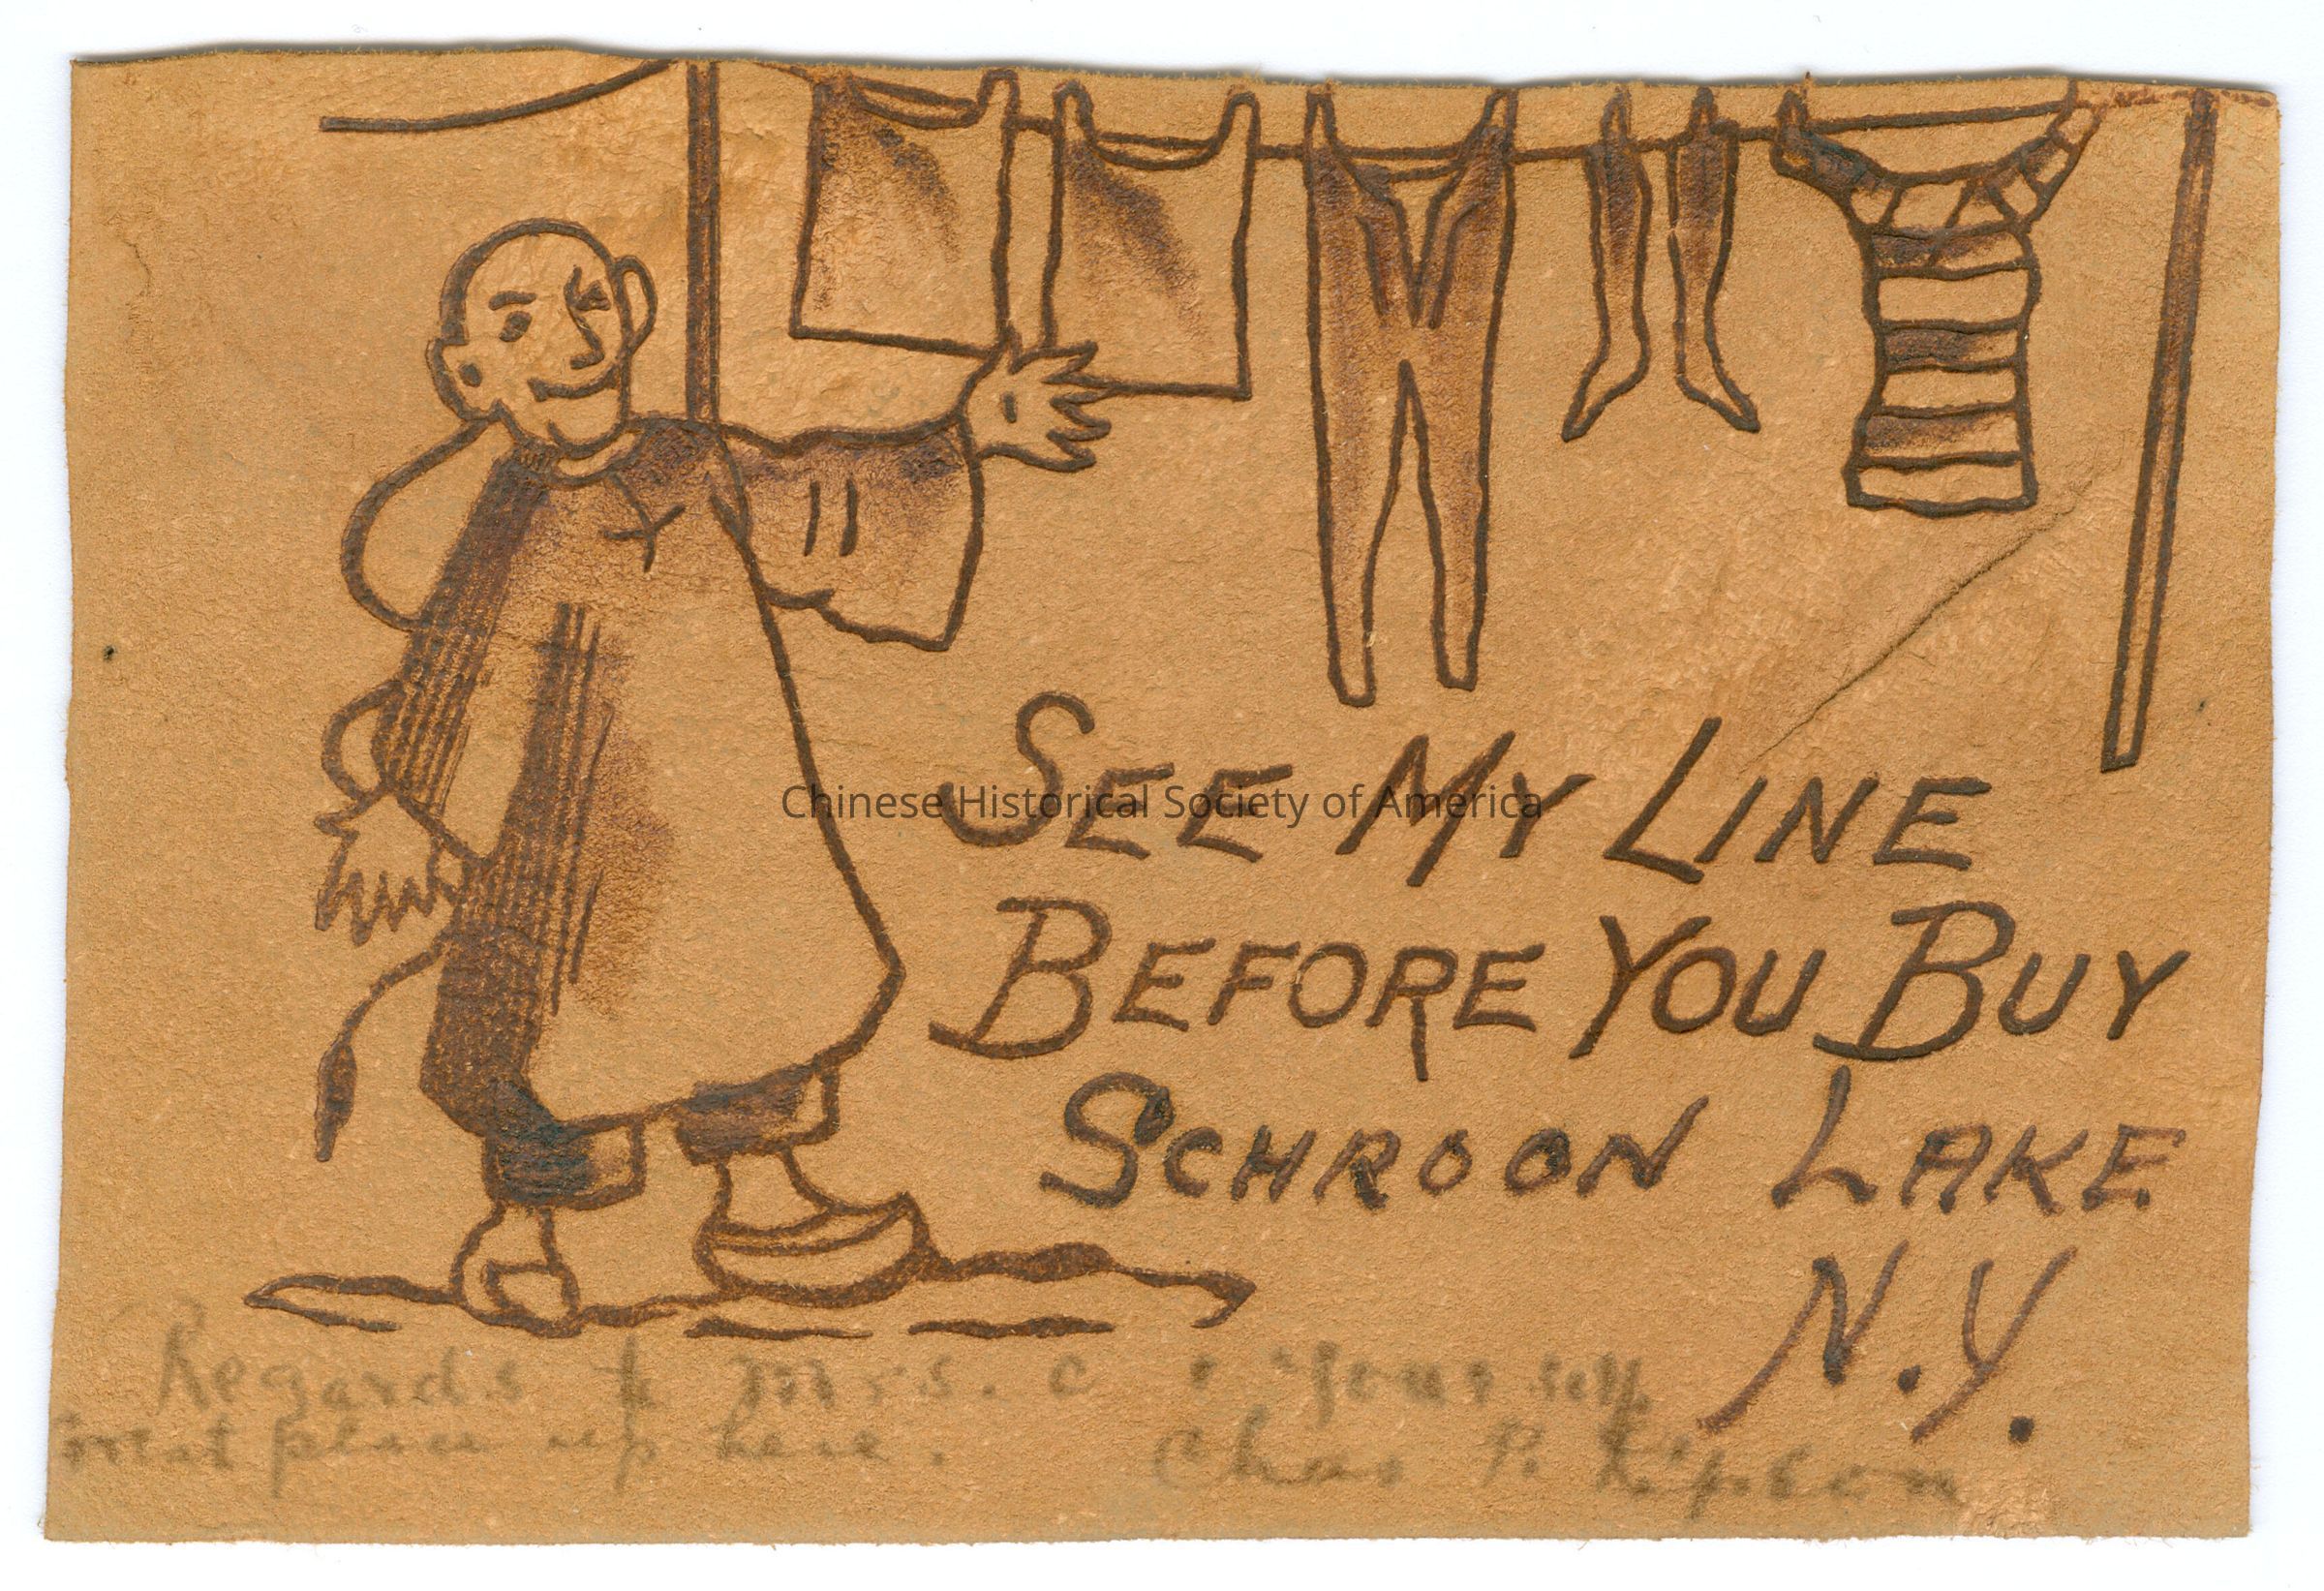 SEE MY LINE
Chinese Historical Society of America
BEFORE YOU BUY
SCHROON LAKE
N.Y.
Regards to Mrs. C & Yourself
Great place up here.
Chas P. Lipson